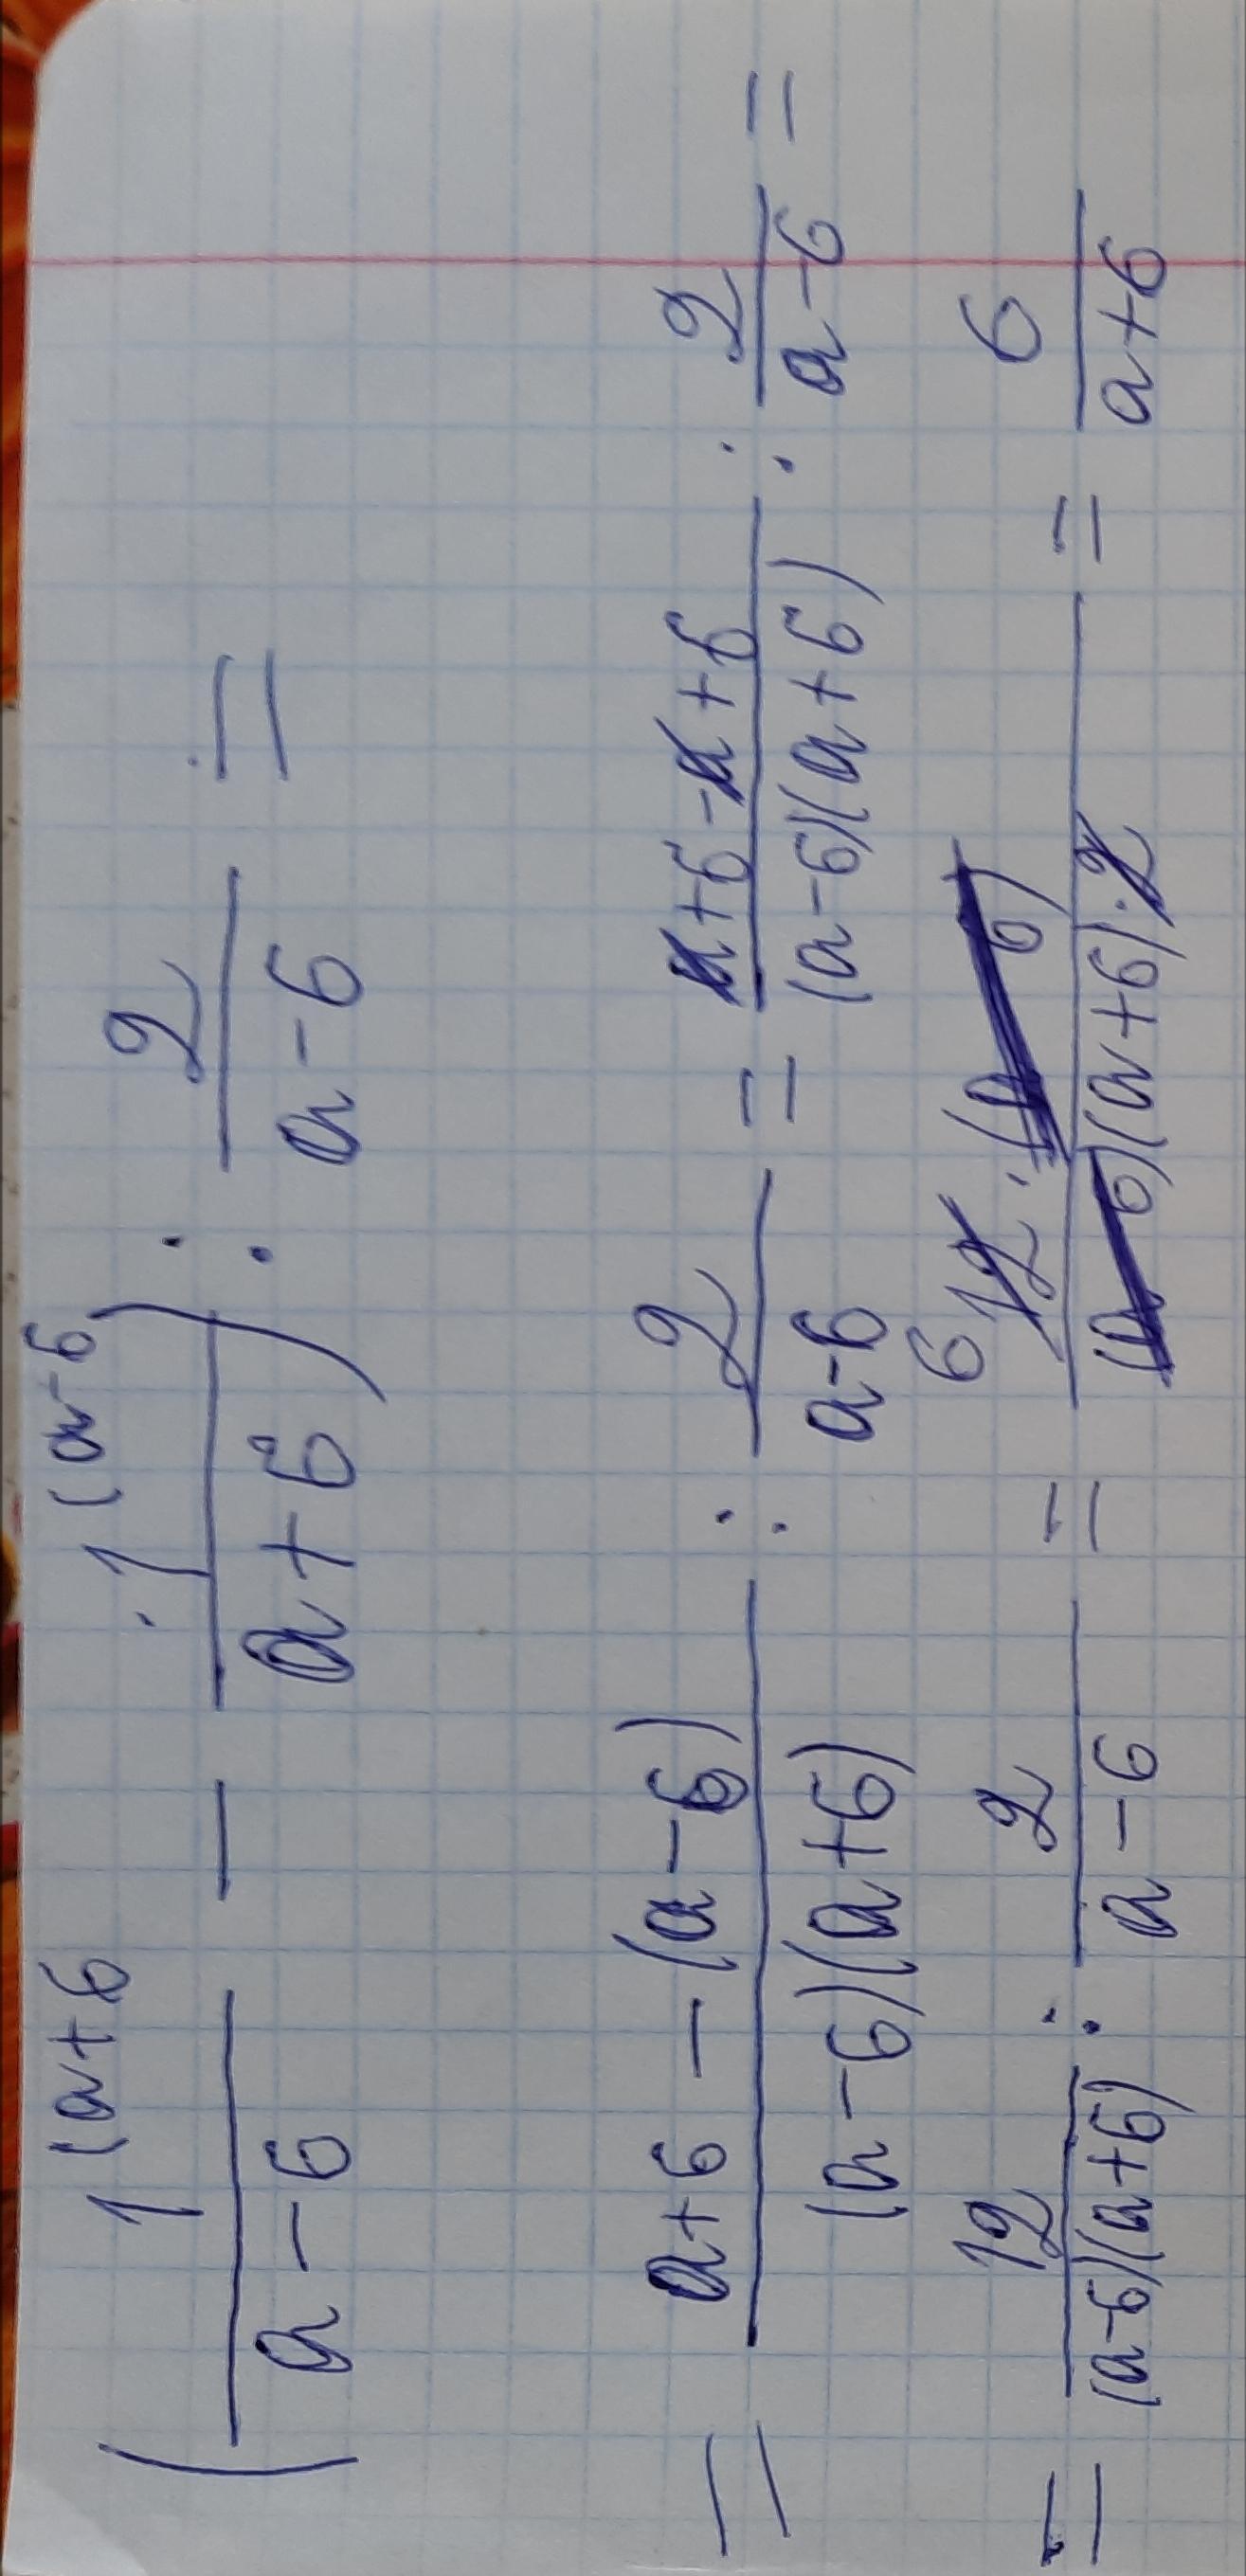 (1(a+6 / a-6 - 1(a-6 / a+6) : 2/a-6 =
= a+6-(a-6) / (a-6)(a+6) : 2/a-6 = a+6-a+6 / (a-6)(a+6) : 2/a-6 =
= 12/(a-6)(a+6) : 2/a-6 = 6 12·(a-6) / (a-6)(a+6)·2 = 6/a+6